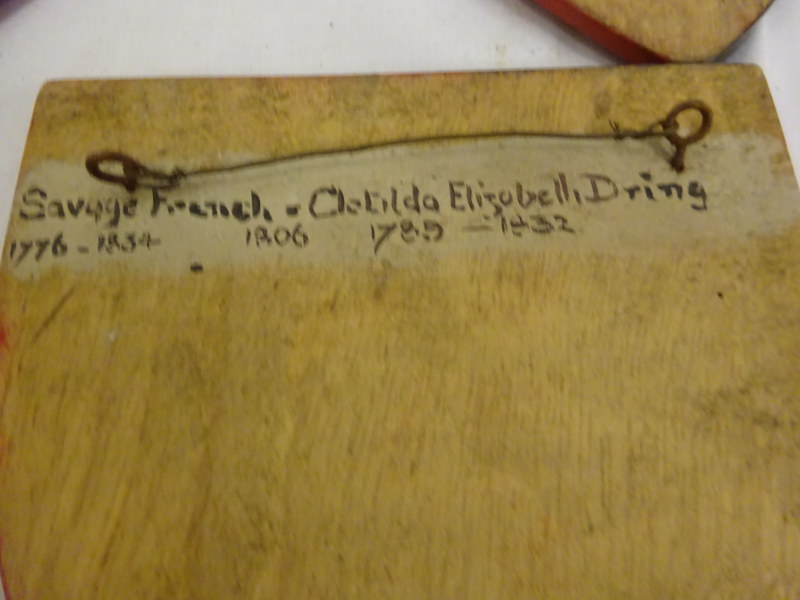 Savage French = Clotilda Elizabeth Dring
1776 - 1834 1806 1789 - 1832